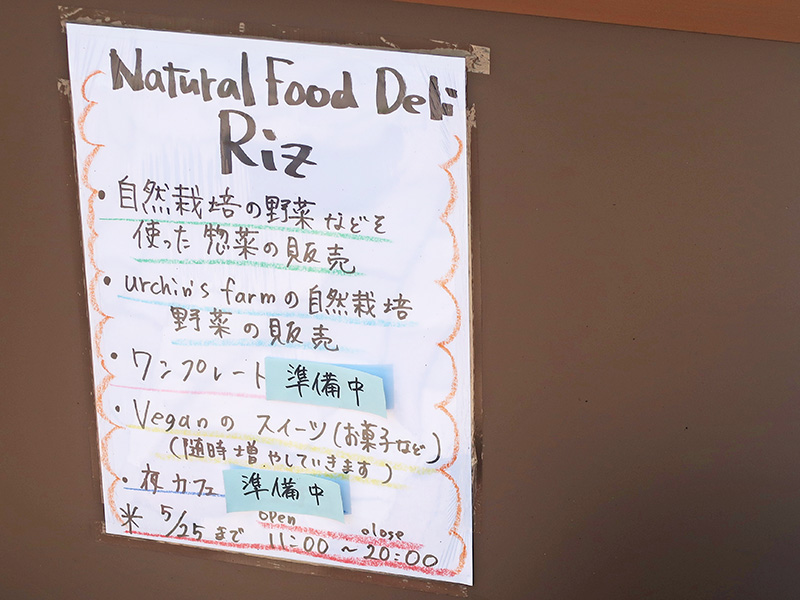 Natural Food Deli
Riz
・自然栽培の野菜などを
使った惣菜の販売
・urchin's farmの自然栽培
野菜の販売
・ワンプレート 準備中
・Veganの スイーツ(お菓子など)
(随時増やしていきます)
・夜カフェ 準備中
open close
※ 5/25まで 11:00 ~ 20:00